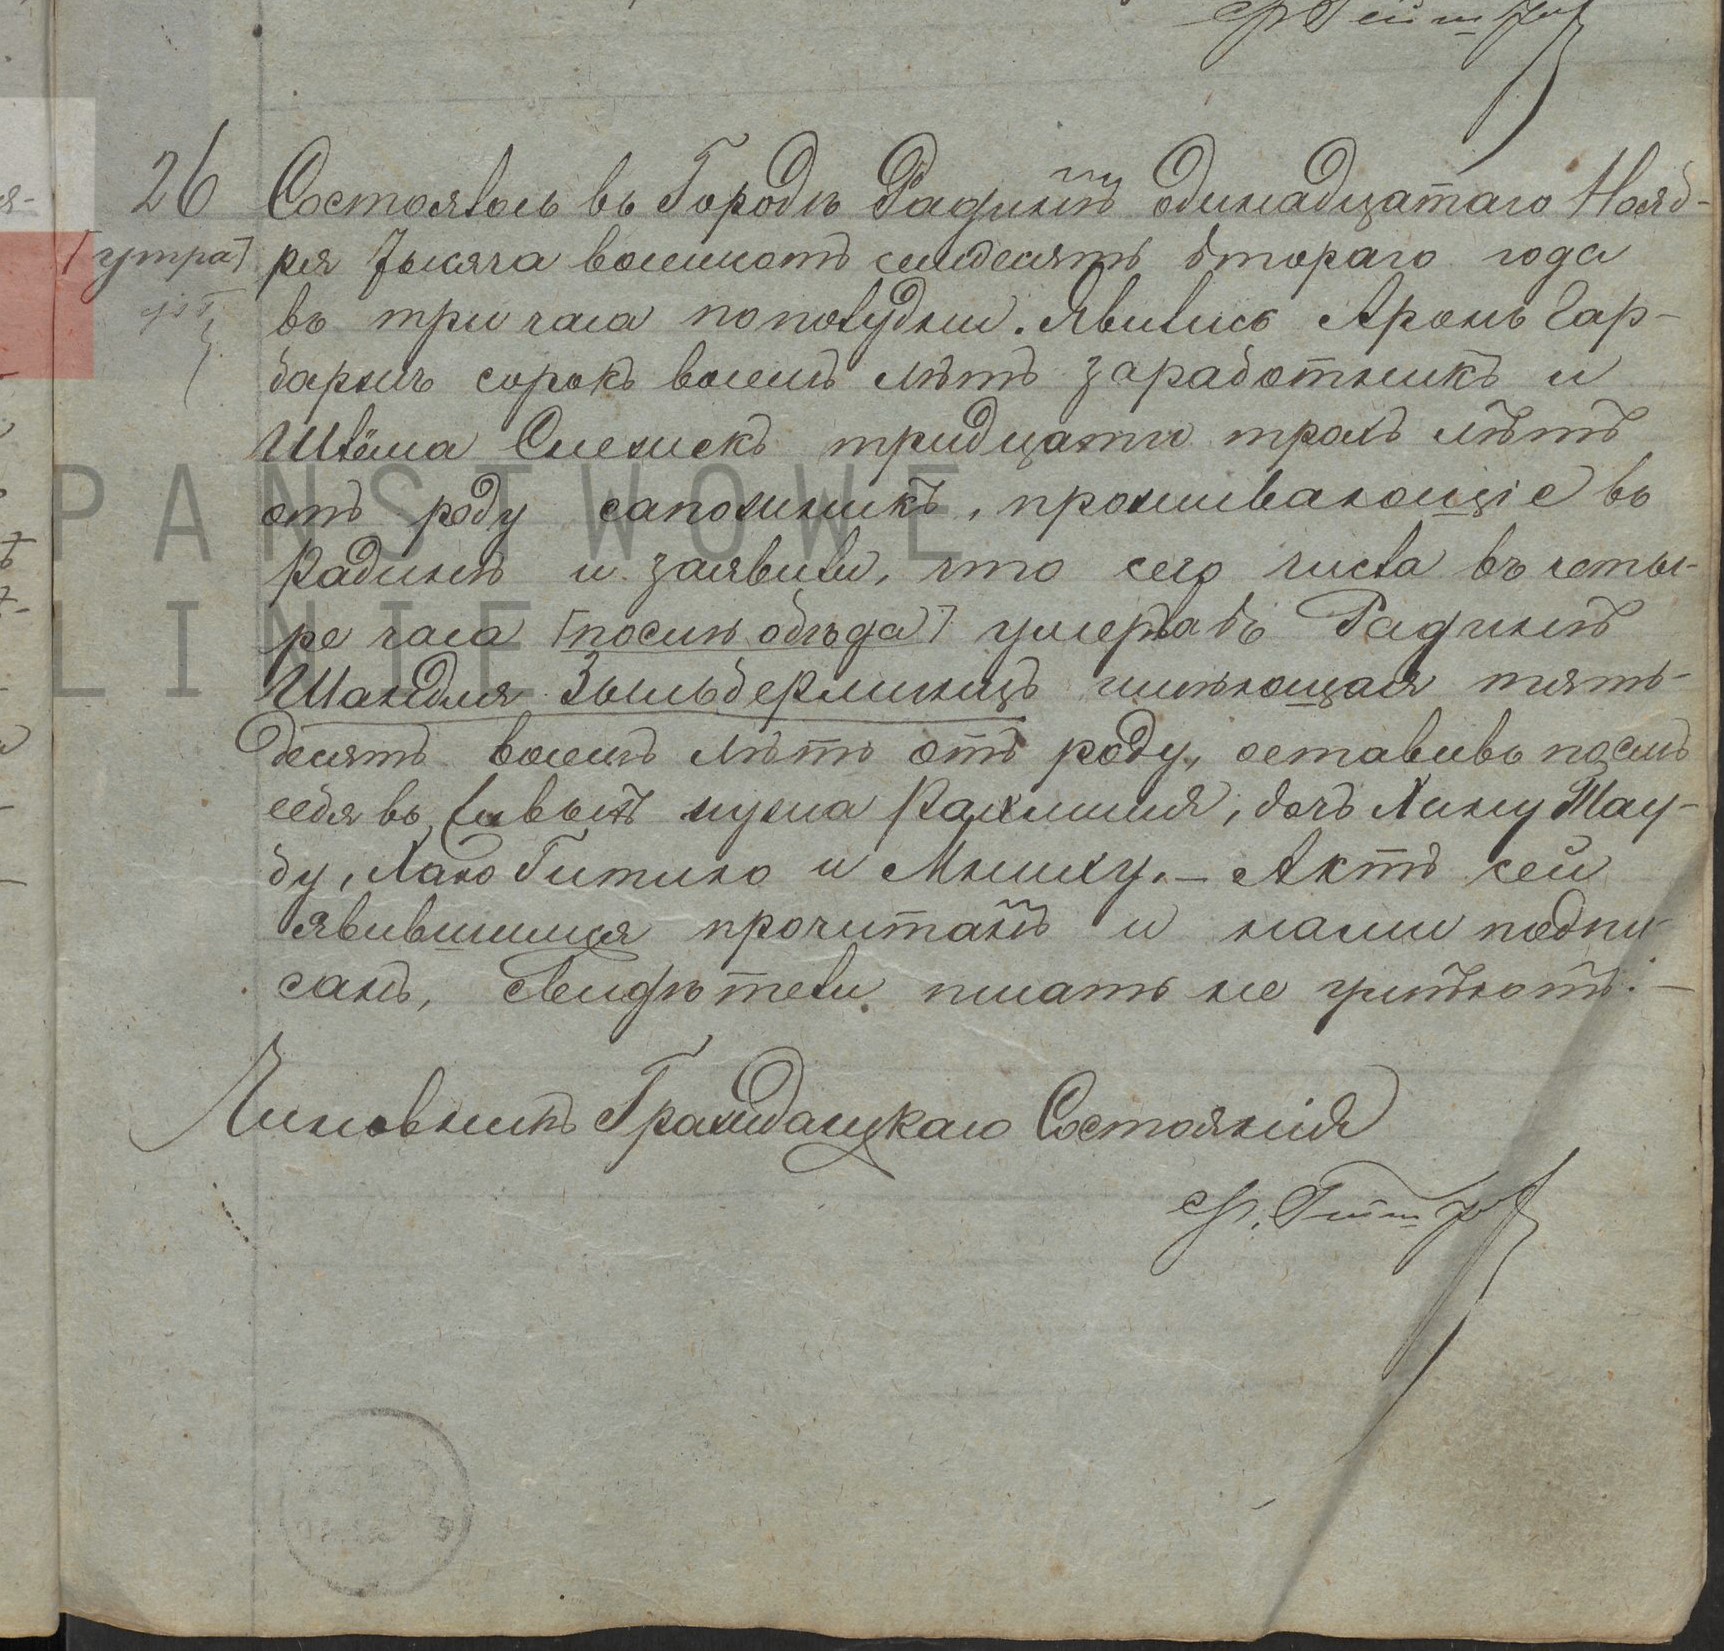 26
Состоялось въ Городѣ Радинѣ одинадцатаго Нояб-
[утра] ря тысяча восемсотъ семдесять втораго года
въ три часа пополудни. Явились Аронъ Гар-
барчъ сорокъ восемъ лѣтъ заработникъ и
Шлёма тридцати трохъ лѣтъ
отъ роду сапожникъ, проживающіе въ
Радинѣ и заявили, что сего числа въ четы-
ре часа [послѣ обѣда] умерла въ Радинѣ
Шандля Зыльберминцъ имѣющая пять-
десятъ восемъ лѣтъ отъ роду, оставивъ послѣ
себя въ живыхъ мужа Рахмиля, дочь Хину Тау-
бу, Хаю Гитлю и Мниху. — Актъ сей
явившимся прочитанъ и нами подпи-
санъ, свидѣтели писать не умѣютъ. —
Чиновникъ Гражданскаго Состоянія
PAŃSTWOWE
LINIE